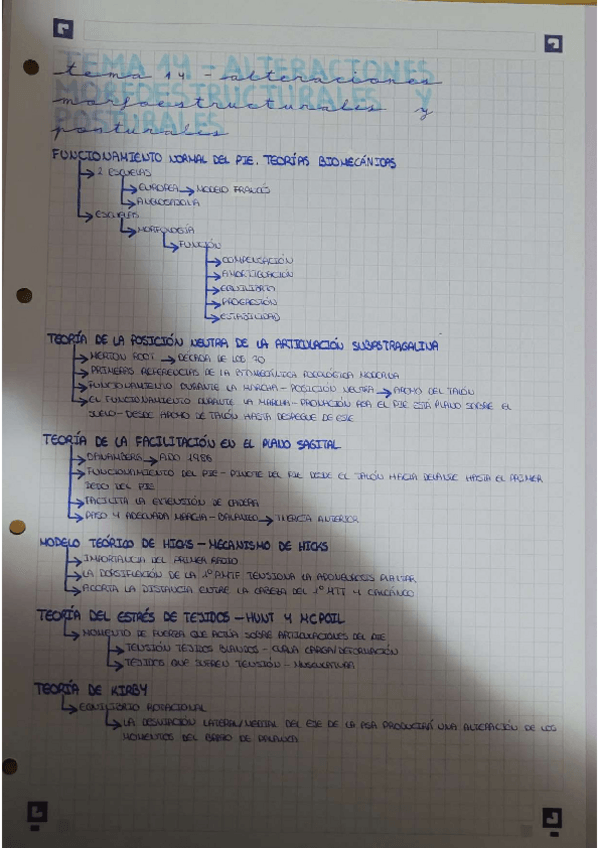 TEMA 14 - ALTERACIONES
tema 14 - alteraciones
MORFOESTRUCTURALES Y
morfoestructurales y
POSTURALES
posturales
FUNCIONAMIENTO NORMAL DEL PIE. TEORÍAS BIOMECÁNICAS
2 ESCUELAS
EUROPEA → MODELO FRANCÉS
ANGLOSAJONA
ESCUELAS
MORFOLOGÍA
FUNCIÓN
COMPENSACIÓN
AMORTIGUACIÓN
EQUILIBRIO
PROPULSIÓN
ESTABILIDAD
TEORÍA DE LA POSICIÓN NEUTRA DE LA ARTICULACIÓN SUBASTRAGALINA
MERTON ROOT → DÉCADA DE LOS 70
PRIMERAS REFERENCIAS DE LA PODOLÓGICA MODERNA
FUNCIONAMIENTO DURANTE LA MARCHA - POSICIÓN NEUTRA → APOYO DEL TALÓN
EL FUNCIONAMIENTO DURANTE LA MARCHA - PRONACIÓN PARA EL PIE ESTÁ PLANO SOBRE EL
SUELO - DESDE APOYO DE TALÓN HASTA DESPEGUE DE ESTE
TEORÍA DE LA FACILITACIÓN EN EL PLANO SAGITAL
DANANBERG → AÑO 1986
FUNCIONAMIENTO DEL PIE - PIVOTE DEL PIE DESDE EL TALÓN HACIA DELANTE HASTA EL PRIMER
DEDO DEL PIE
FACILITA LA EXTENSIÓN DE CADERA
PASO Y ADECUADA MARCHA - BALANCEO → INERCIA ANTERIOR
MODELO TEÓRICO DE HICKS - MECANISMO DE HICKS
IMPORTANCIA DEL PRIMER RADIO
LA DORSIFLEXIÓN DE LA 1ª AMTF TENSIONA LA APONEUROSIS PLANTAR
ACORTA LA DISTANCIA ENTRE LA CABEZA DEL 1º MTT Y CALCÁNEO
TEORÍA DEL ESTRÉS DE TEJIDOS - HUNT Y MCPOIL
MOMENTO DE FUERZA QUE ACTÚA SOBRE ARTICULACIONES DEL PIE
TENSIÓN TEJIDOS BLANDOS - CURVA CARGA/DEFORMACIÓN
TEJIDOS QUE SUFREN TENSIÓN - MUSCULATURA
TEORÍA DE KIRBY
EQUILIBRIO ROTACIONAL
LA DESVIACIÓN LATERAL/MEDIAL DEL EJE DE LA ASA PRODUCIRÁ UNA ALTERACIÓN DE LOS
MOMENTOS DEL BRAZO DE PALANCA